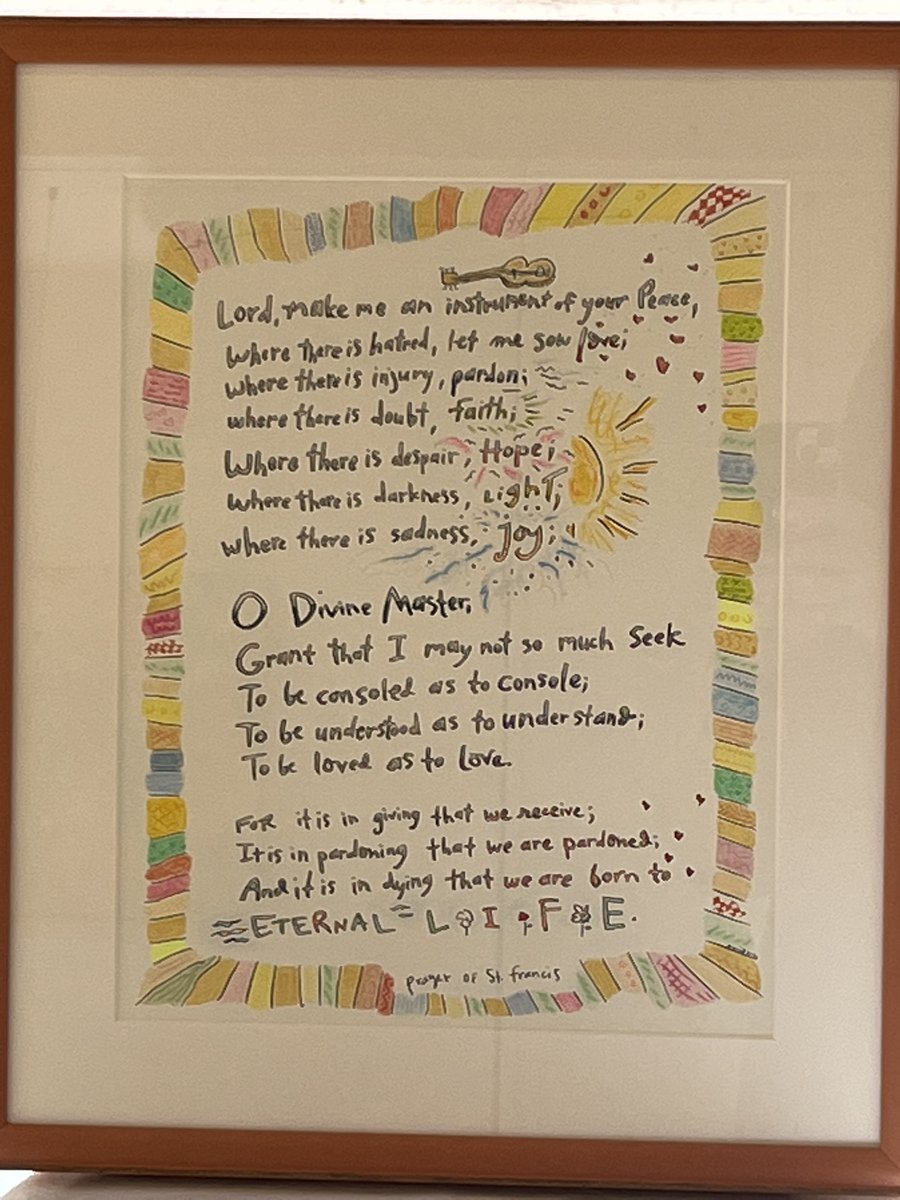 Lord, make me an instrument of your Peace,
Where there is hatred, let me sow love;
where there is injury, pardon;
where there is doubt, faith;
Where there is despair, Hope;
Where there is darkness, LighT;
where there is sadness, Joy;
O Divine Master,
Grant that I may not so much Seek
To be consoled as to console;
To be understood as to understand;
To be loved as to Love.
FOR it is in giving that we receive;
It is in pardoning that we are pardoned;
And it is in dying that we are born to
ETERNAL LIFE.
prayer of St. Francis